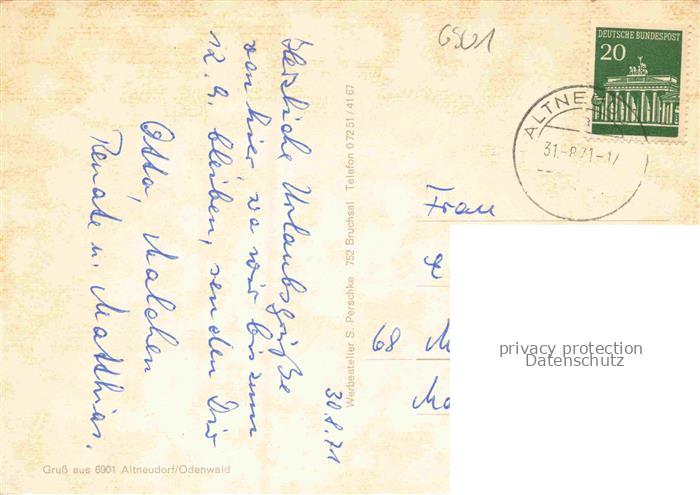 6901
DEUTSCHE BUNDESPOST
20
ALTNEUDORF
31.-8.71-17
Herzliche Urlaubsgrüße
von hier wo wir bis zum
12.9. bleiben, senden Dir
Otto, Malchen
Renate u. Matthias.
30.8.71
Werbeatelier S. Perschke 752 Bruchsal Telefon 0 72 51 / 41 67
Frau
68 M
Ma
privacy protection
Datenschutz
Gruß aus 6901 Altneudorf/Odenwald